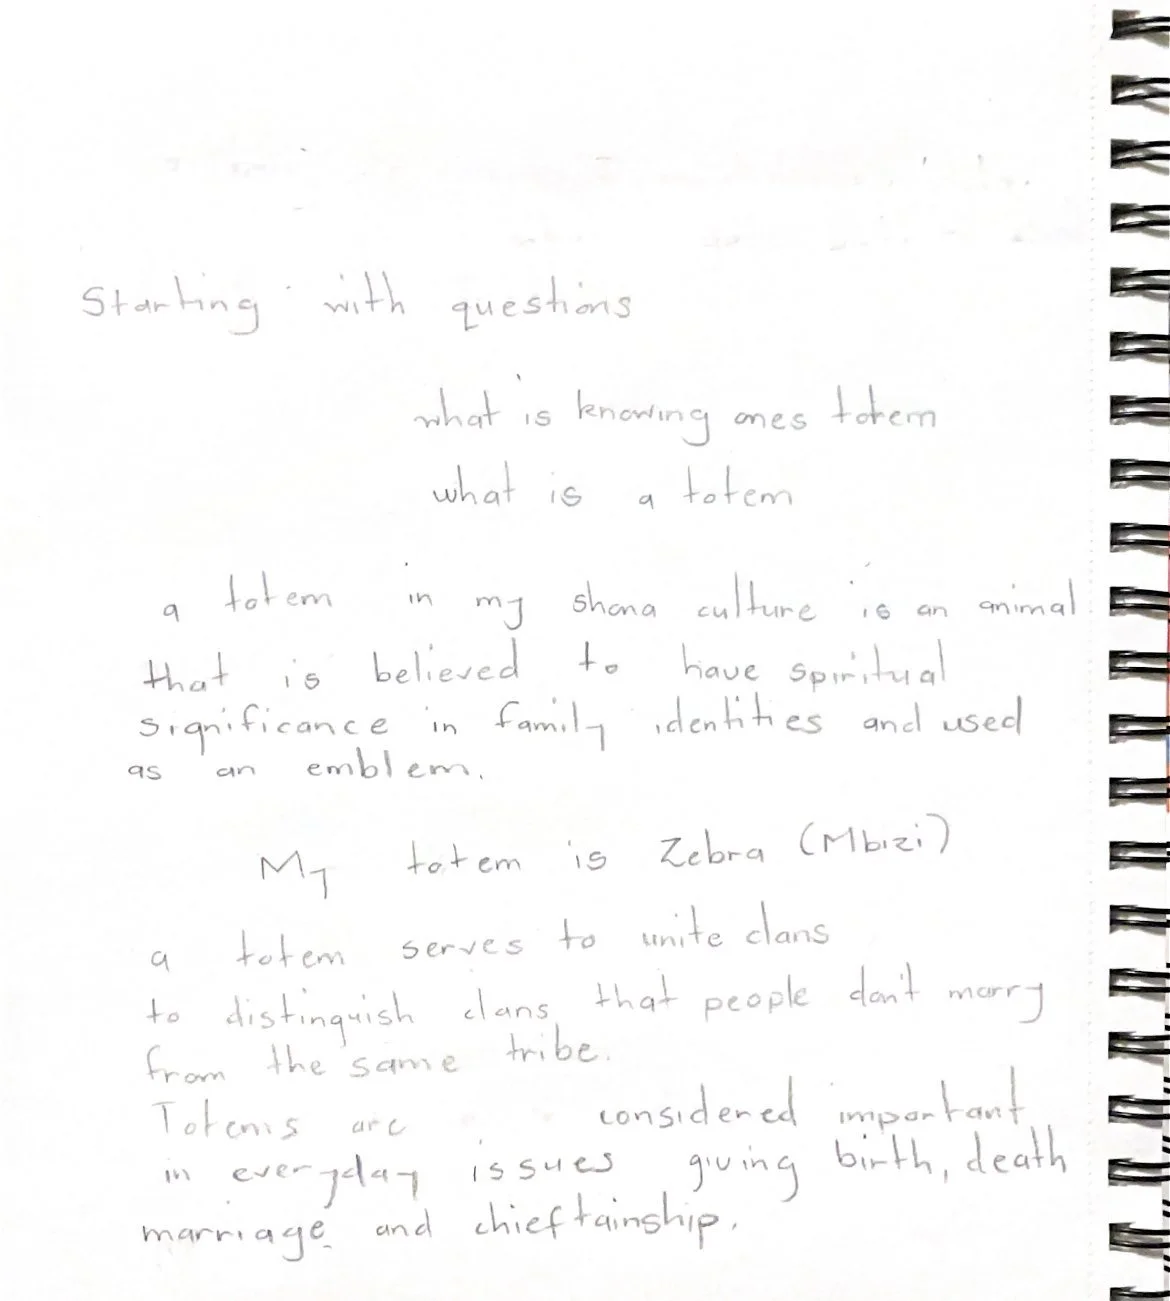 Starting with questions
what is knowing ones totem
what is a totem
a totem in my shona culture is an animal
that is believed to have spiritual
significance in family identities and used
as an emblem.
My totem is Zebra (Mbizi)
a totem serves to unite clans
to distinguish clans that people don't marry
from the same tribe.
Totems are considered important
in everyday issues giving birth, death
marriage and chieftainship.